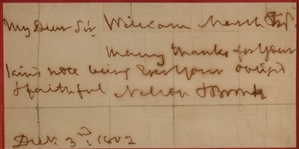 My Dear Sir William Marsh Esqr.
Many thanks for your
kind note being Ever your oblig'd
& faithful Nelson & Bronte
Decr. 3rd. 1802